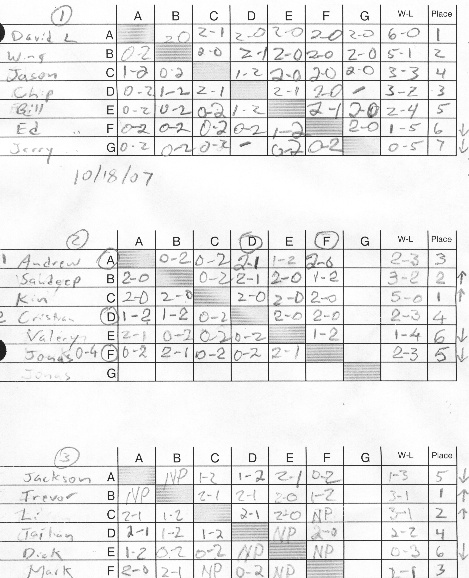 1 A B C D E F G W-L Place
David L A 2-0 2-1 2-0 2-0 2-0 2-0 6-0 1
Wing B 0-2 2-0 2-1 2-0 2-0 2-0 5-1 2
Jason C 1-2 0-2 1-2 2-0 2-0 2-0 3-3 4
Chip D 0-2 1-2 2-1 2-1 2-0 - 3-2 3
Bill E 0-2 0-2 0-2 1-2 2-1 2-0 2-4 5
Ed F 0-2 0-2 0-2 0-2 1-2 2-0 1-5 6 ↓
Jerry G 0-2 0-2 0-2 - 0-2 0-2 0-5 7 ↓
10/18/07
2 A B C D E F G W-L Place
1 Andrew A 0-2 0-2 2-1 1-2 2-0 2-3 3
Sandeep B 2-0 0-2 2-1 2-0 1-2 3-2 2 ↑
Kin C 2-0 2-0 2-0 2-0 2-0 5-0 1 ↑
2 D 1-2 1-2 0-2 2-0 2-0 2-3 4
Valery E 2-1 0-2 0-2 0-2 1-2 1-4 6 ↓
Jonas 0-4 F 0-2 2-1 0-2 0-2 2-1 2-3 5 ↓
Jonas G
3 A B C D E F G W-L Place
Jackson A NP 1-2 1-2 2-1 0-2 1-3 5 ↓
Trevor B NP 2-1 2-1 2-0 1-2 3-1 1 ↑
Li C 2-1 1-2 2-1 2-0 NP 3-1 2 ↑
D 2-1 1-2 1-2 NP 2-0 2-2 4
Dick E 1-2 0-2 0-2 NP NP 0-3 6 ↓
Mark F 2-0 2-1 NP 0-2 NP 3